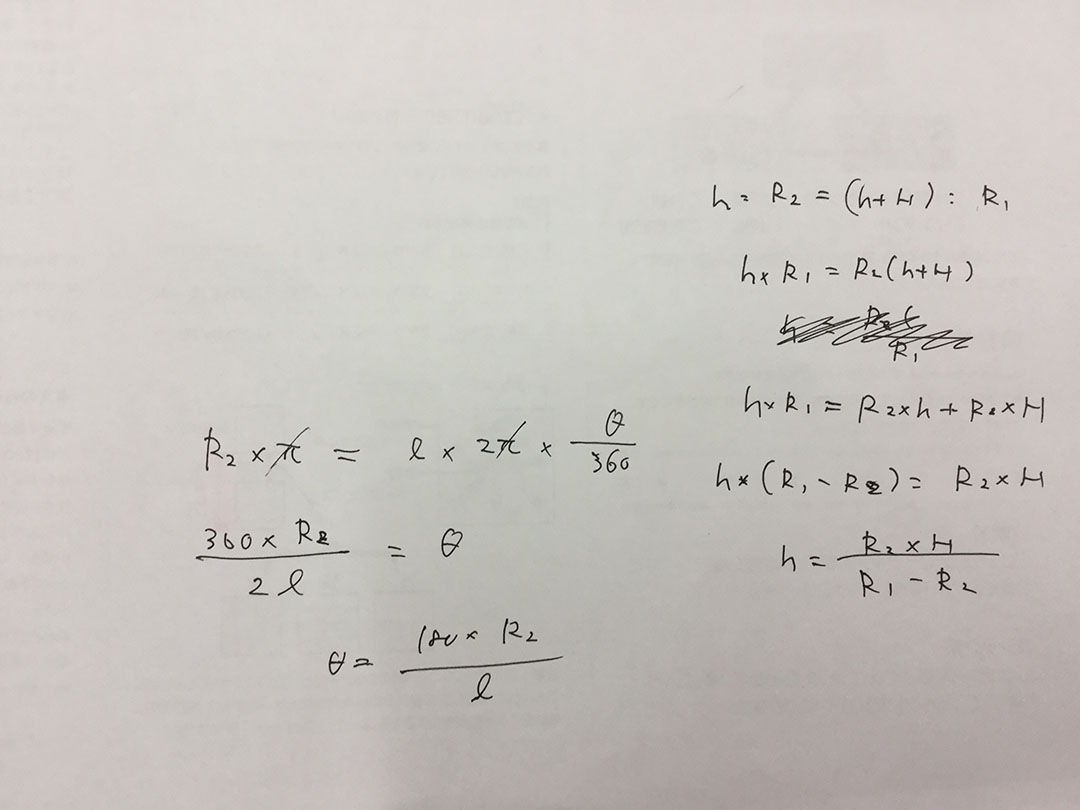 h = R₂ = (h+H) : R₁
h × R₁ = R₂(h+H)
h × R₁ = R₂ × h + R₂ × H
h × (R₁ - R₂) = R₂ × H
h = R₂ × H / R₁ - R₂
R₂ × π = l × 2π × θ / 360
360 × R₂ / 2l = θ
θ = 180 × R₂ / l